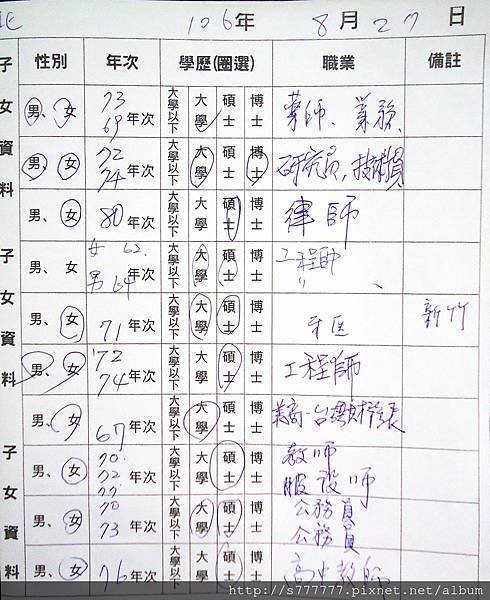 106年 8月27日
子女資料 性別 年次 學歷(圈選) 職業 備註
男、女 73 69年次 大學以下 大學 碩士 博士 藥師、業務、
男、女 72 74年次 大學以下 大學 碩士 博士 研究員,技術員
男、女 80年次 大學以下 大學 碩士 博士 律師
子女資料 男、女 女 62. 男 64年次 大學以下 大學 碩士 博士 工程師 〃
男、女 71年次 大學以下 大學 碩士 博士 牙医 新竹
男、女 '72 74年次 大學以下 大學 碩士 博士 工程師
男、女 67年次 大學以下 大學 碩士 博士
子女資料 男、女 70. 72年次 大學以下 大學 碩士 博士 教師 服設師
男、女 70 73年次 大學以下 大學 碩士 博士 公務員 公務員
男、女 76年次 大學以下 大學 碩士 博士 高中教師
http://s777777.pixnet.net/album